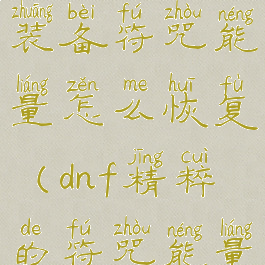 zhuāng bèi fú zhòu néng
装备符咒能
liáng zěn me huī fù
量怎么恢复
jīng cuì
(dnf精粹
de fú zhòu néng liáng
的符咒能量